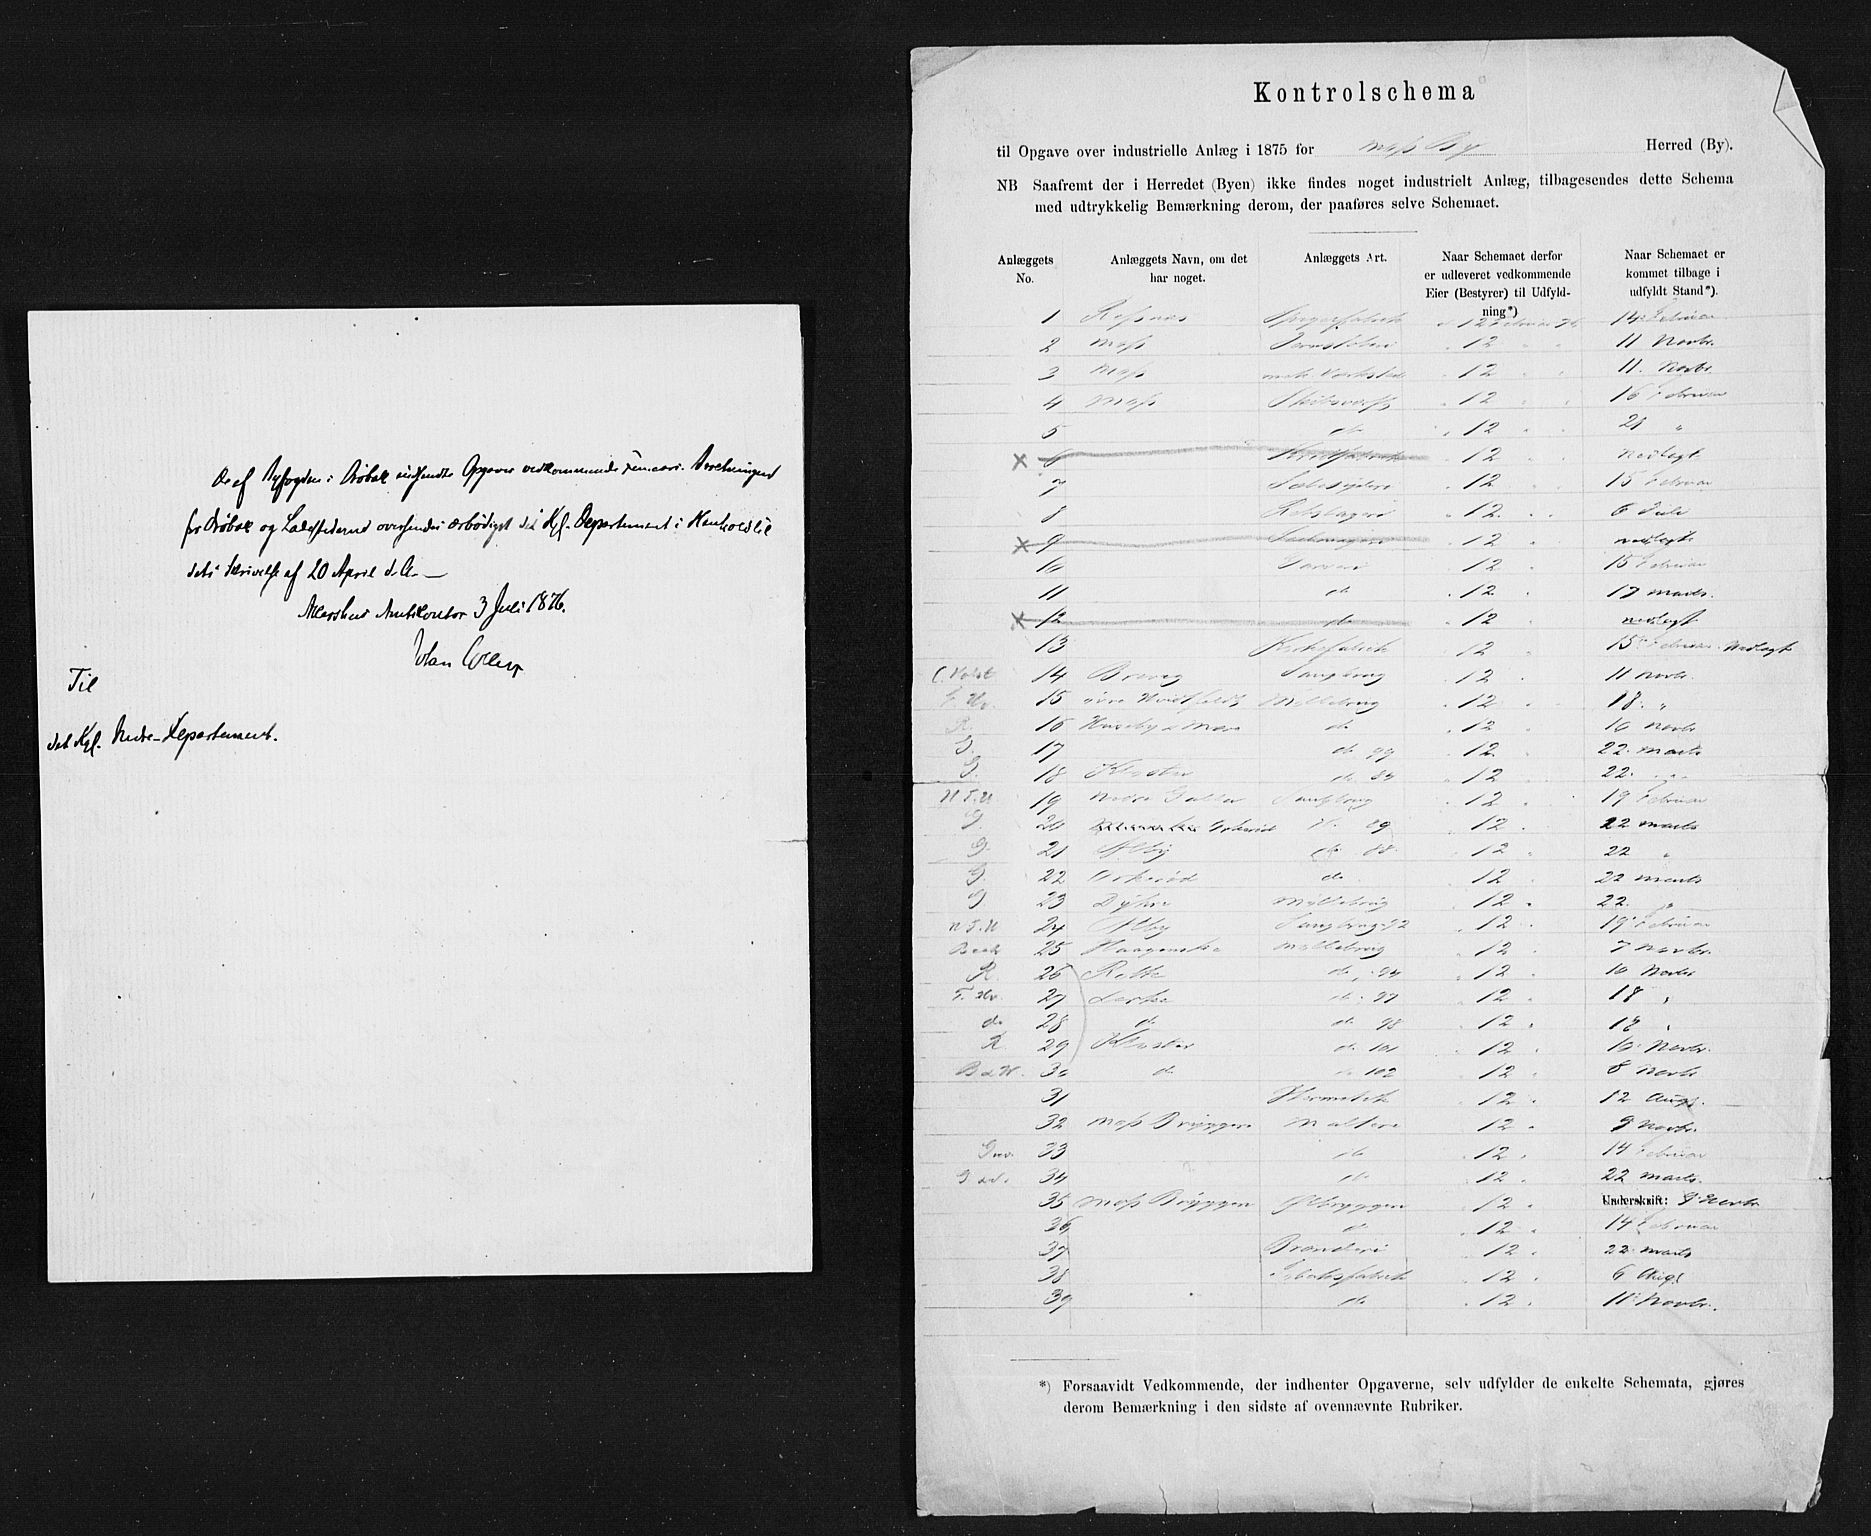 De af Byfogden i Drøbak indsendte Opgaver vedkommende Femaars-Beretningen
for Drøbak og Ladestederne oversendes ærbødigst det Kgl. Departement i Henhold til
dets Skrivelse af 20 April d. A. —
Akershus Amtskontor 3 Juli 1876.
Til
det Kgl. Indre-Departement.
Kontrolschema
til Opgave over industrielle Anlæg i 1875 for Moss By Herred (By).
NB Saafremt der i Herredet (Byen) ikke findes noget industrielt Anlæg, tilbagesendes dette Schema
med udtrykkelig Bemærkning derom, der paaføres selve Schemaet.
Anlæggets No. Anlæggets Navn, om det har noget. Anlæggets Art. Naar Schemaet derfor er udleveret vedkommende Eier (Bestyrer) til Udfyldning*) Naar Schemaet er kommet tilbage i udfyldt Stand*).
1 Refsnæs 12 Februar 76 14 Februar
2 Moss Jernstøberi 12 " " 11 Novbr.
3 Moss mek Værksted 12 " " 11. Novbr.
4 Moss Skibsværft 12 " " 16 Februar
5 do 12 " " 21 "
x 6 12 " Nedlagt
7 Sæbesyderi 12 " " 15 Februar
8 Rebslageri 12 " 6 Juli
x 9 12 " nedlagt
10 Garveri 12 " " 15 Februar
11 do 12 " " 17 Marts.
x 12 do 12 nedlagt
13 12 " 15 Februar. Nedlagt
14 Brevig Sagbrug 12 " 11 Novbr.
15 Møllebrug 12 " 18. "
R. 16 do 12 " 10 Novbr
G. 17 do 99 12 " 22. Marts
G. 18 Kloster do 12 " 22. " "
19 Nedre Sagbrug 12 " 19 Februar
G. 20 89 12 " 22 Marts
G. 21 Ælby do 88 12 " 22 "
G. 22 Orkerød do 12 " 22 Marts
G 23 Møllebrug 12 " 22. "
24 Ælby Sagbrug 92 12 " 19 Februar
Back 25 Møllebrug 12 " 7 Novbr.
R. 26 do 12 " 10 Novbr
27 do 97 12 " 18 "
do 28 do do 98 12 " 18 "
R. 29 Kloster do 101 12 " 10. Novbr.
30 do do 102 12 " 8 Novbr
31 12 " 12 Aug.
32 Moss Bryggeri Malteri 12 " 9 Novbr.
33 do 12 " 14 Februar
34 do 12 " 22 Marts.
35 Moss Bryggeri Ølbryggeri 12 " Underskrift: 9 Novbr
36 do 12 " 14 Februar
37 Brænderi 12 " 22 Marts
38 Tobaksfabrik 12 " 6 Aug.
39 do 12 " 11 Novbr.
*) Forsaavidt Vedkommende, der indhenter Opgaverne, selv udfylder de enkelte Schemata, gjøres
derom Bemærkning i den sidste af ovennævnte Rubriker.